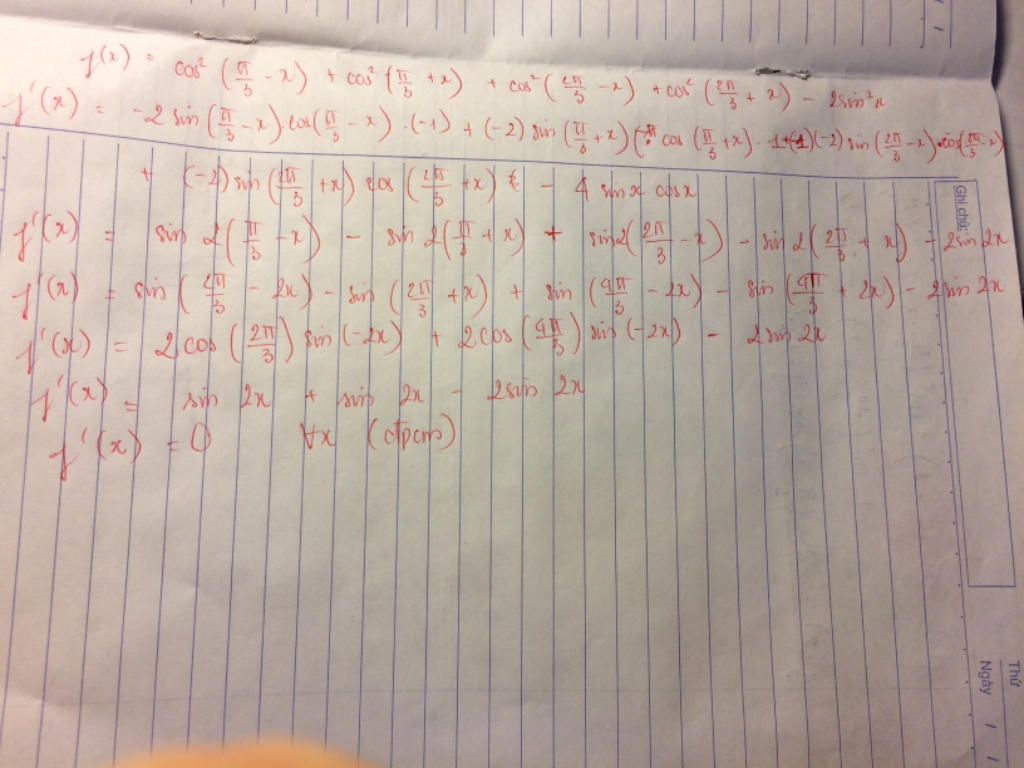 f(x) = cos² (π/3 - x) + cos² (π/3 + x) + cos² (2π/3 - x) + cos² (2π/3 + x) - 2sin²x
f'(x) = -2 sin (π/3 - x).cos(π/3 - x) .(-1) + (-2) sin (π/3 + x) cos (π/3 + x). (-2) sin (2π/3 - x).cos(2π/3 - x)
+ (-2) sin (2π/3 + x) cos (2π/3 + x) - 4 sin x cos x
Ghi chú:
f'(x) = sin 2(π/3 - x) - sin 2(π/3 + x) + sin2(2π/3 - x) - sin 2(2π/3 + x) - 2sin 2x
f'(x) = sin (2π/3 - 2x) - sin (2π/3 + x) + sin (4π/3 - 2x) - sin (4π/3 + 2x) - 2sin 2x
f'(x) = 2cos (2π/3) sin (-2x) + 2cos (4π/3) sin (-2x) - 2sin 2x
f'(x) = sin 2x + sin 2x - 2sin 2x
f'(x) = 0 ∀x (đpcm)
Thứ
Ngày / /